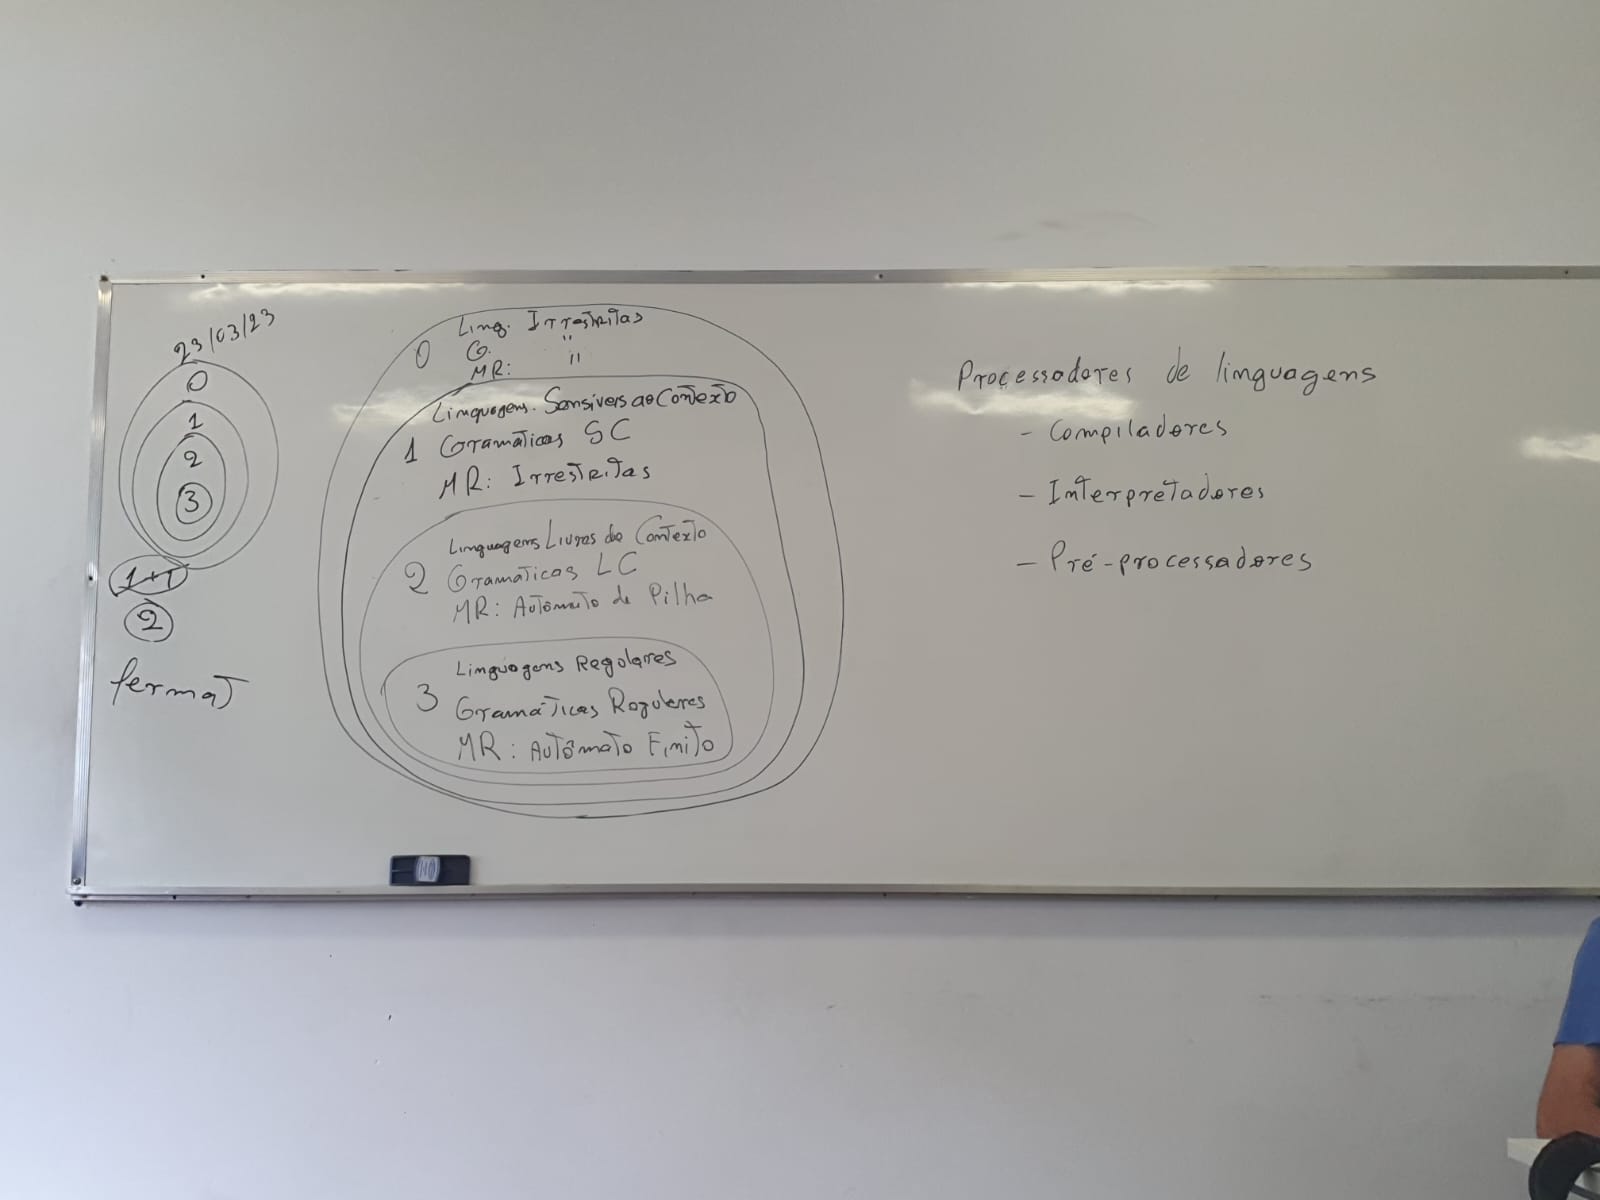 23/03/23
0
1
2
3
1+T
2
fermat
0
Ling. Irrestritas
G. "
MR: "
1
Linguagens. Sensíveis ao Contexto
Gramáticas SC
MR: Irrestritas
2
Linguagens Livres de Contexto
Gramáticas LC
MR: Autômato de Pilha
3
Linguagens Regulares
Gramáticas Regulares
MR: Autômato Finito
Processadores de linguagens
- Compiladores
- Interpretadores
- Pré-processadores